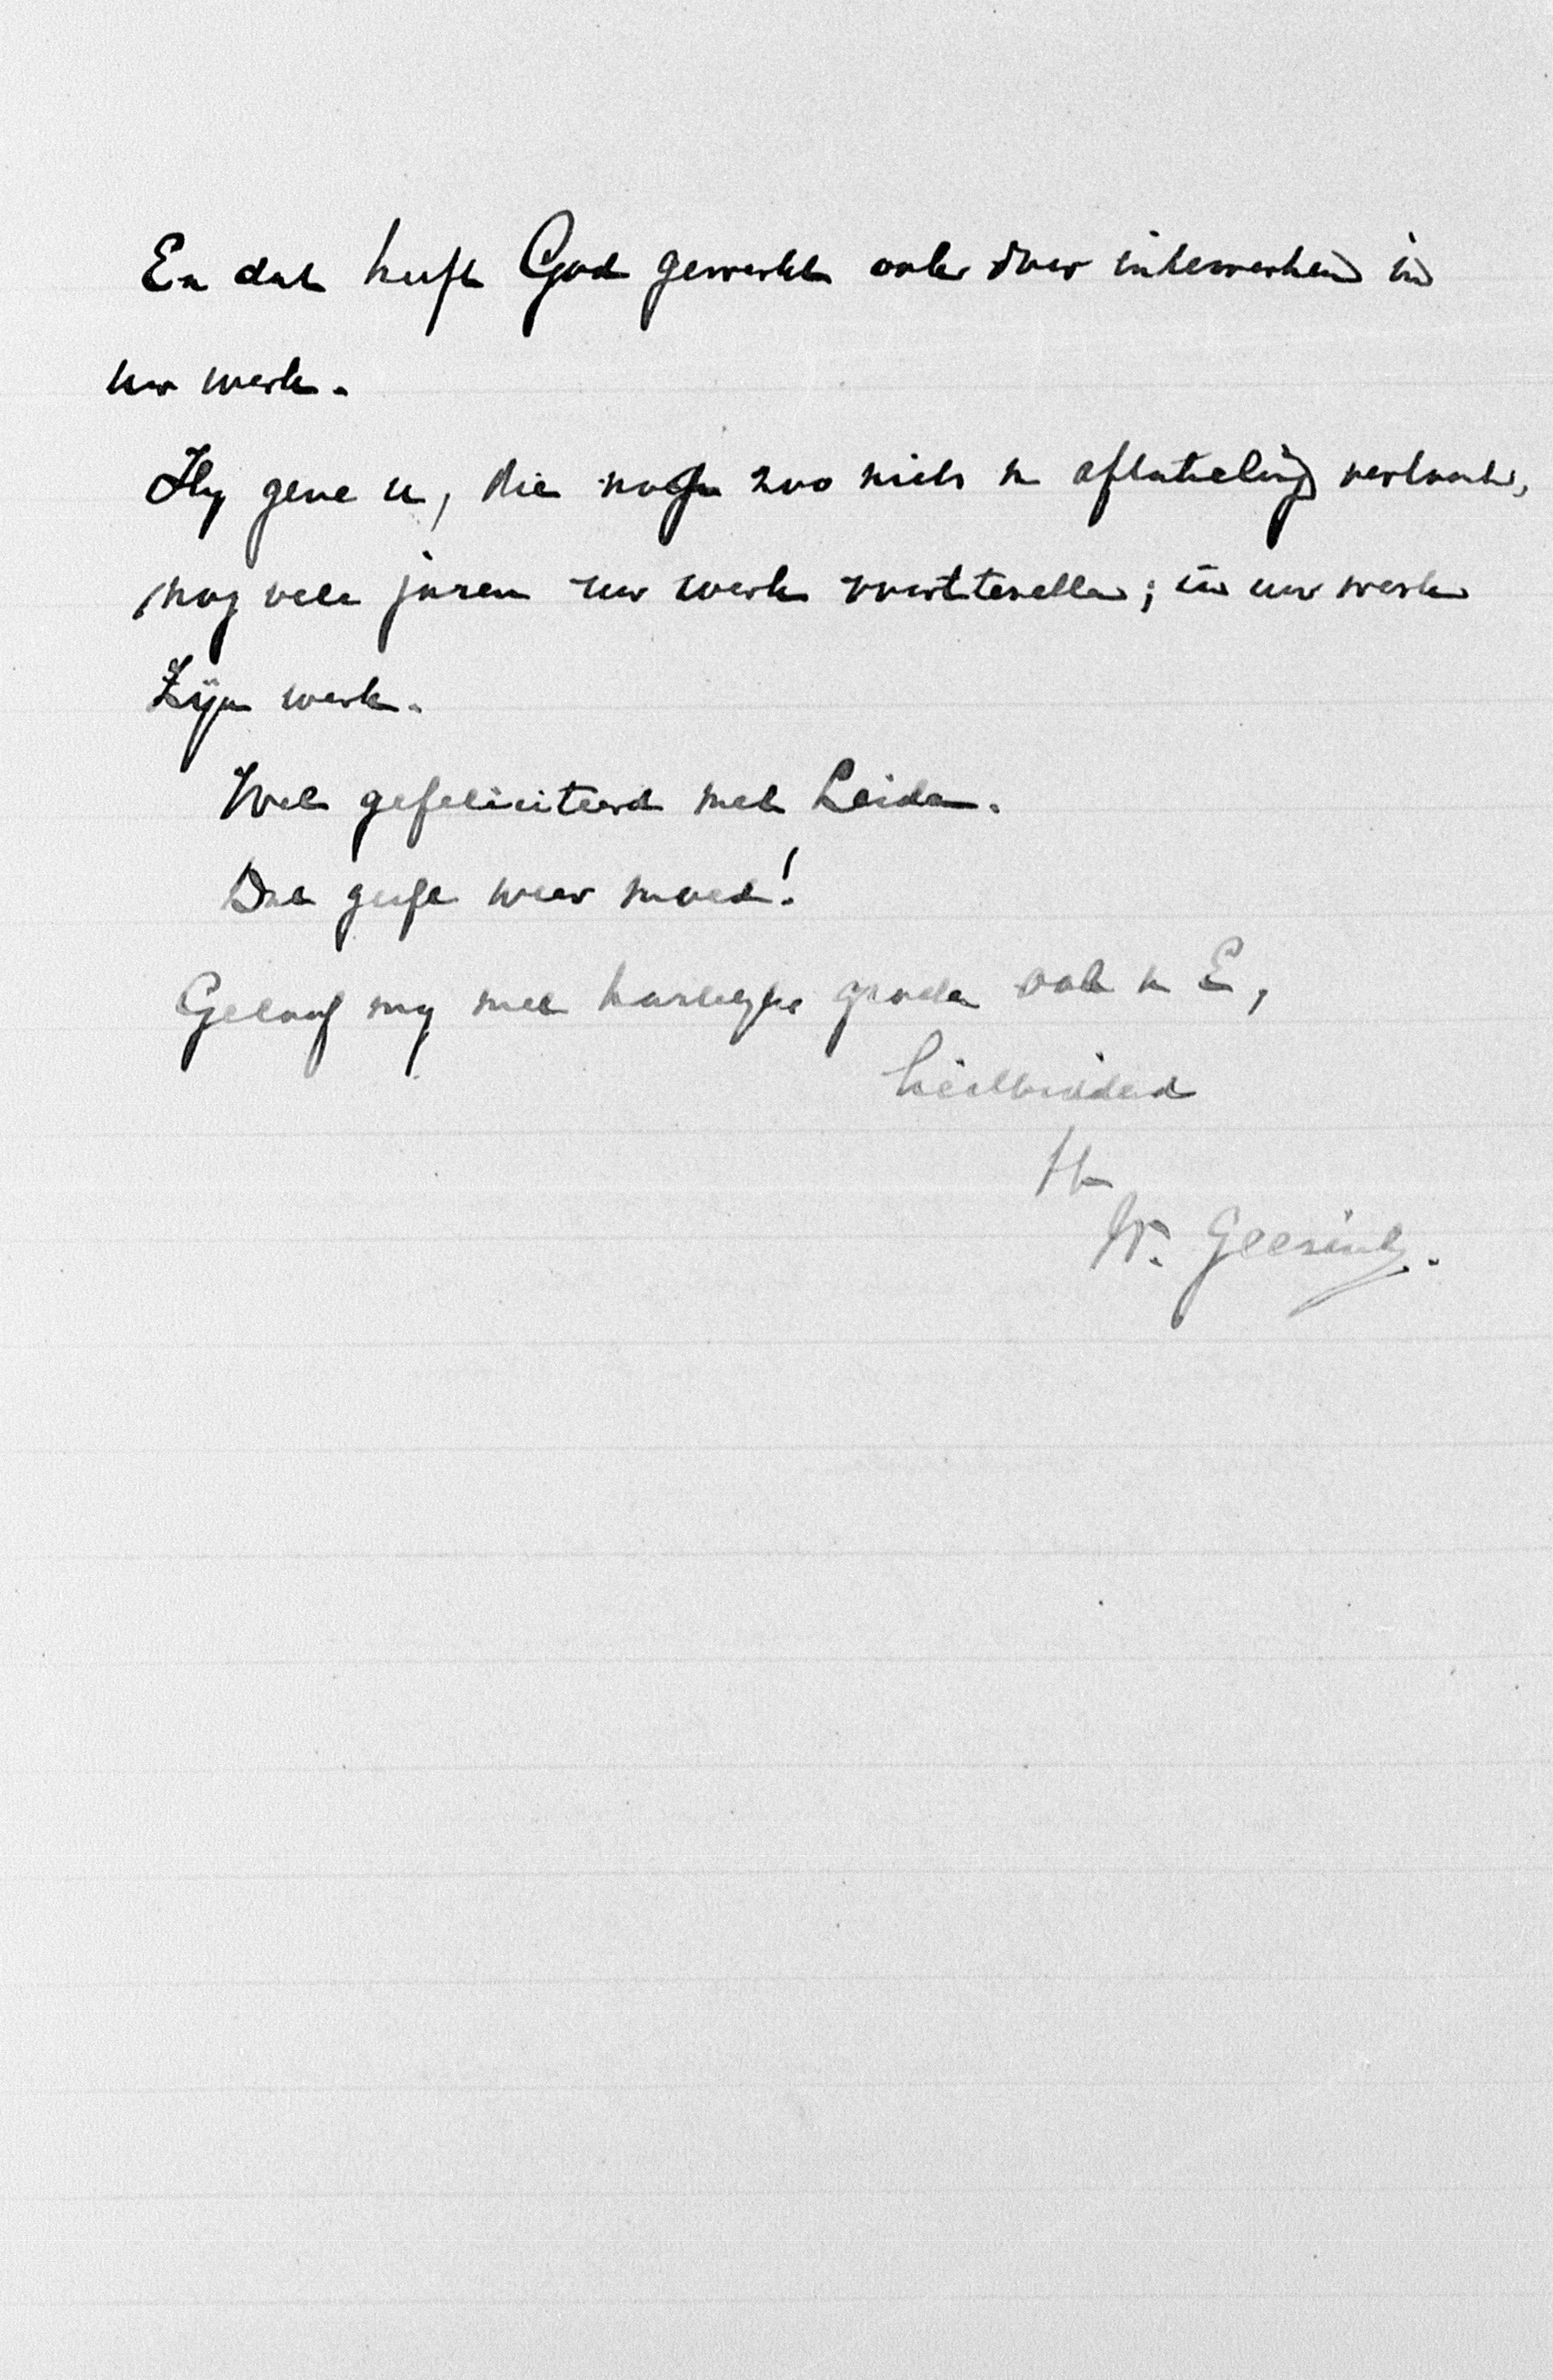 En dat heeft God gewerkt ook door in te werken in
uw werk.
Hy geve u, die nog zoo niets n aflating verlaat,
nog vele jaren uw werk voort te zetten; in uw werk
Zijn werk.
Wel gefeliciteerd met Leiden.
Dat geeft weer moed!
Geloof my met hartelyke groeten ook n E,
heilbiddend
W. Geesink.